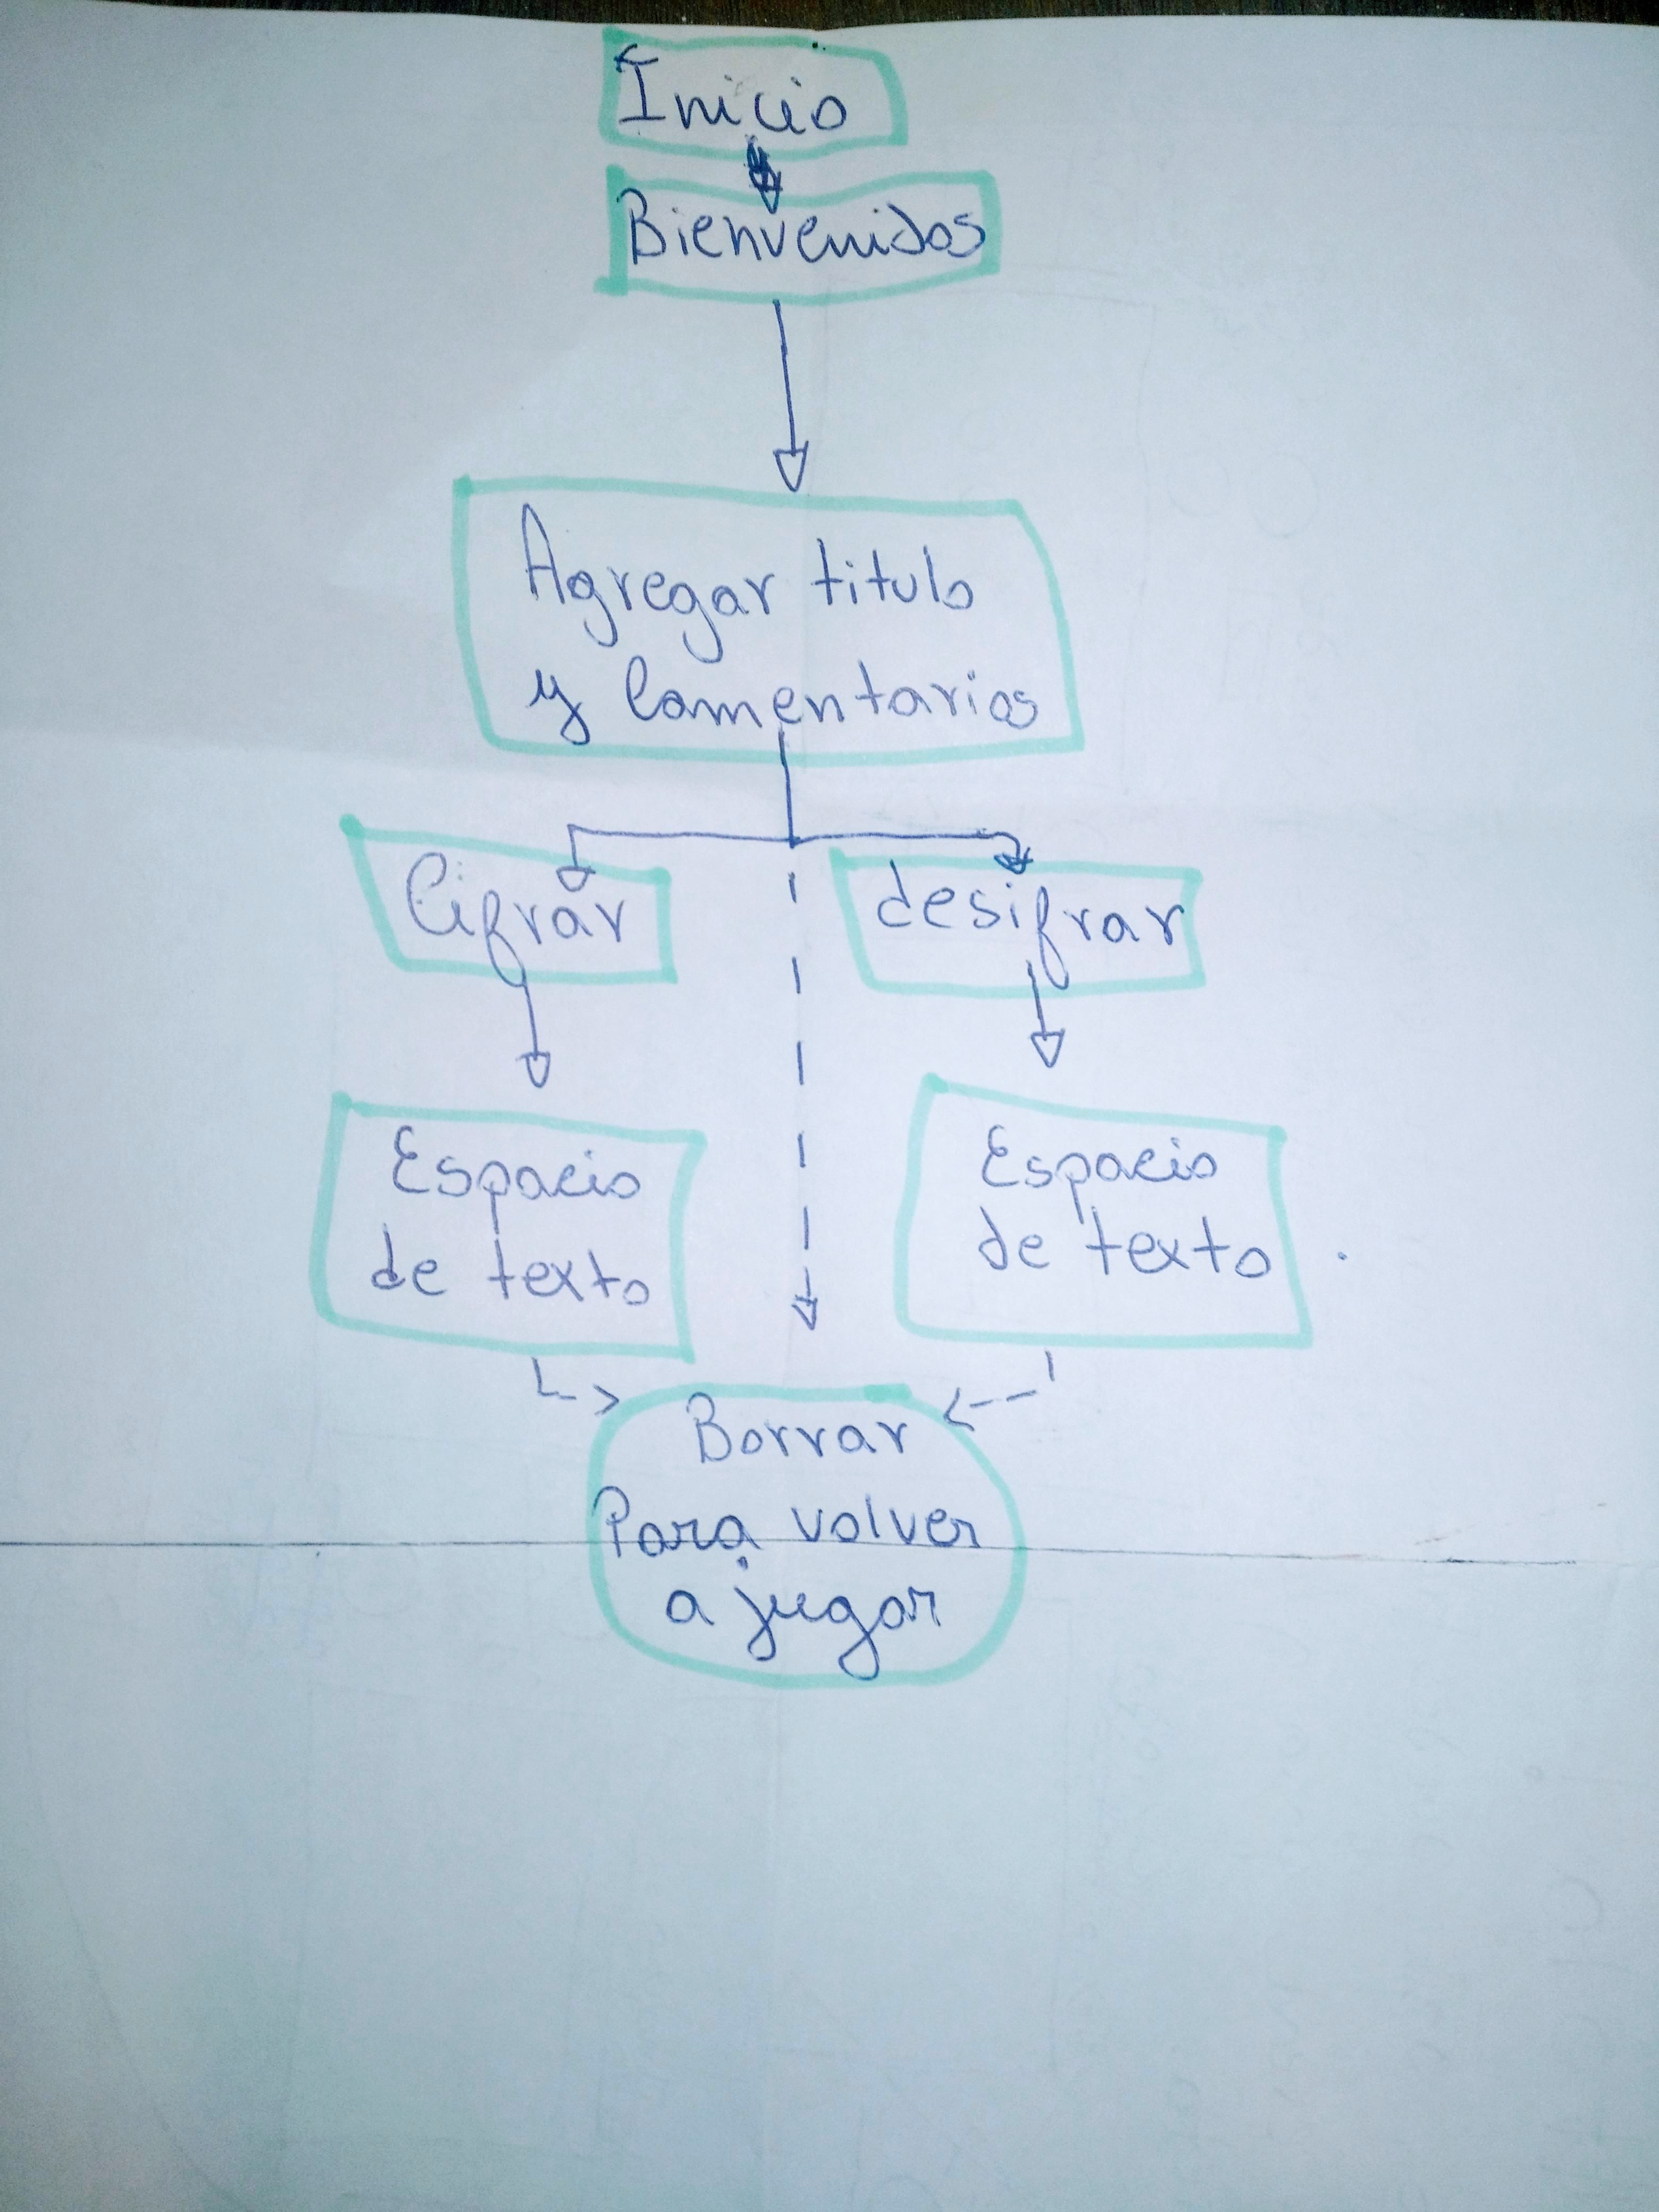 Inicio
Bienvenidos
Agregar titulo
y Comentarios
Cifrar
desifrar
Espacio
de texto
Espacio
de texto
Borrar
Para volver
a jugar